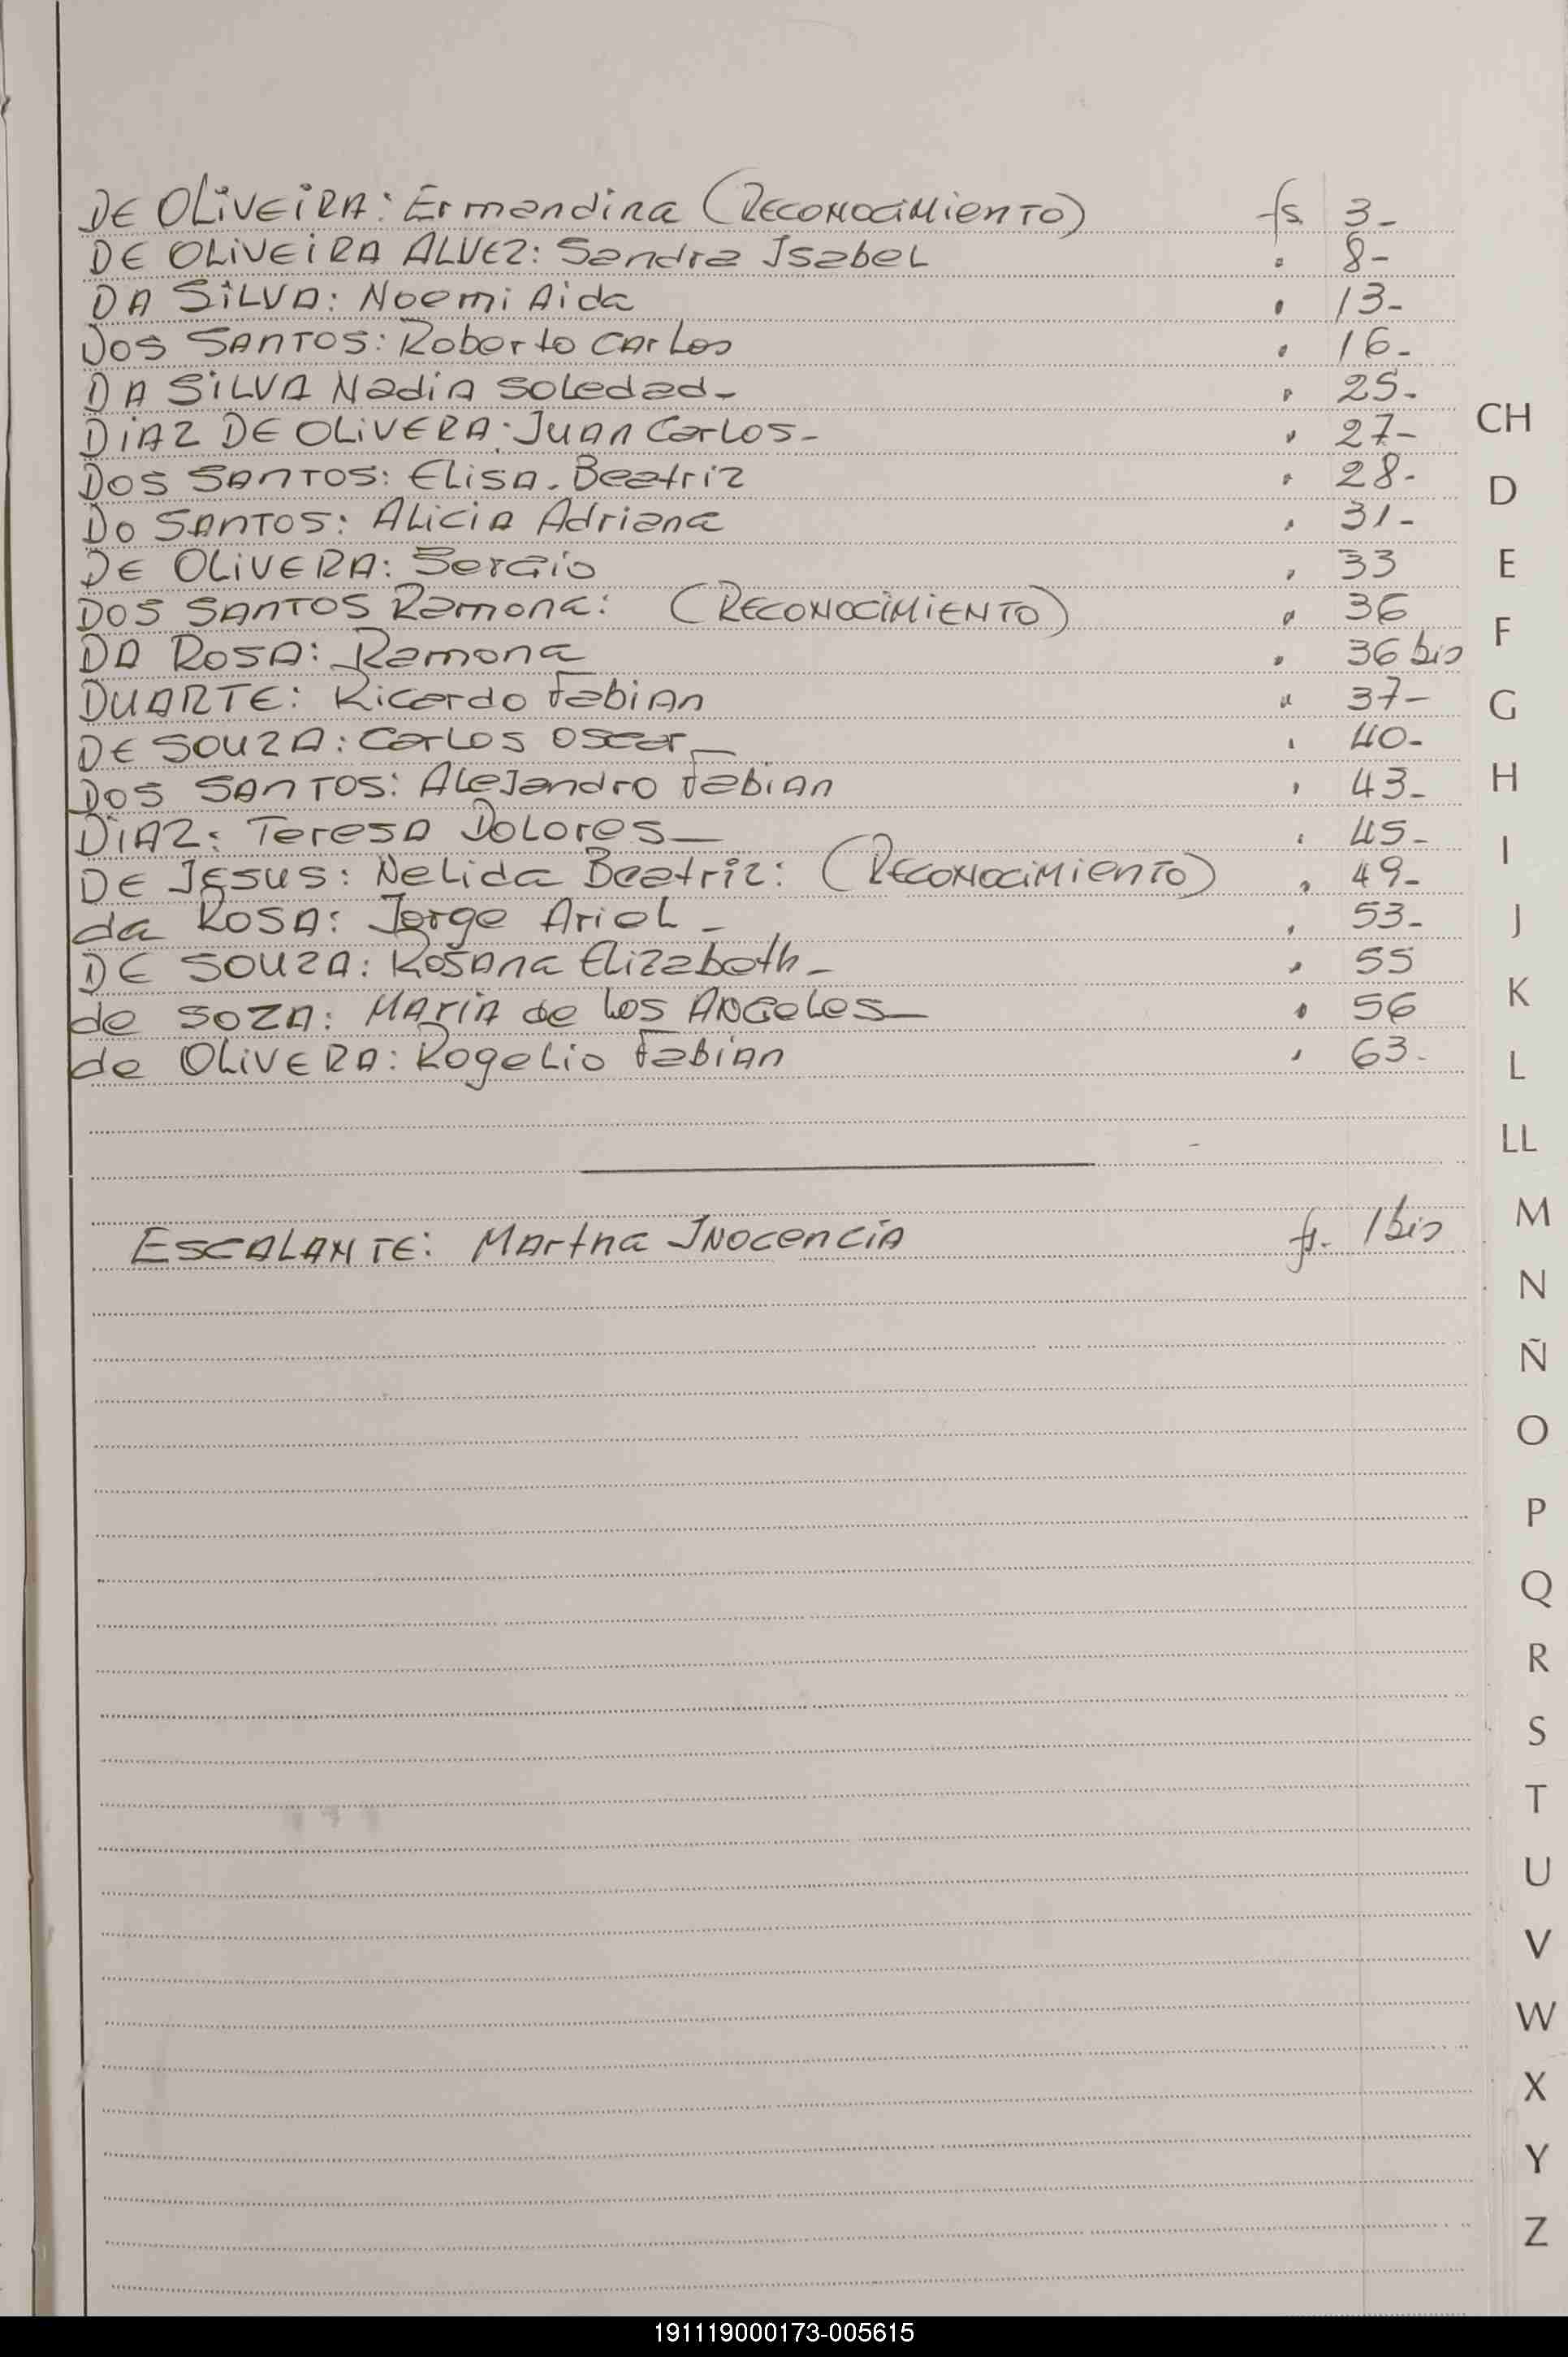 DE OLIVEIRA: Ermandina (RECONOCIMIENTO) fs 3-
DE OLIVEIRA ALVEZ: Sandra Isabel " 8-
DA SILVA: Noemi Aida " 13-
DOS SANTOS: Roberto Carlos " 16-
DA SILVA Nadia Soledad- " 25-
DIAZ DE OLIVERA: Juan Carlos- " 27-
DOS SANTOS: Elisa. Beatriz " 28-
DO SANTOS: Alicia Adriana " 31-
DE OLIVERA: Sergio " 33
DOS SANTOS Ramona: (RECONOCIMIENTO) " 36
DA ROSA: Ramona " 36 bis
DUARTE: Ricardo Fabian " 37-
DE SOUZA: Carlos Oscar- " 40-
DOS SANTOS: Alejandro Fabian " 43-
DIAZ: Teresa Dolores- " 45-
DE JESUS: Nelida Beatriz: (RECONOCIMIENTO) " 49-
da ROSA: Jorge Ariel- " 53-
DE SOUZA: Rosana Elizabeth- " 55
de SOZA: Maria de los Angeles- " 56
de OLIVERA: Rogelio Fabian " 63-
ESCALANTE: Martha Inocencia fs. 1 bis
CH
D
E
F
G
H
I
J
K
L
LL
M
N
Ñ
O
P
Q
R
S
T
U
V
W
X
Y
Z
191119000173-005615